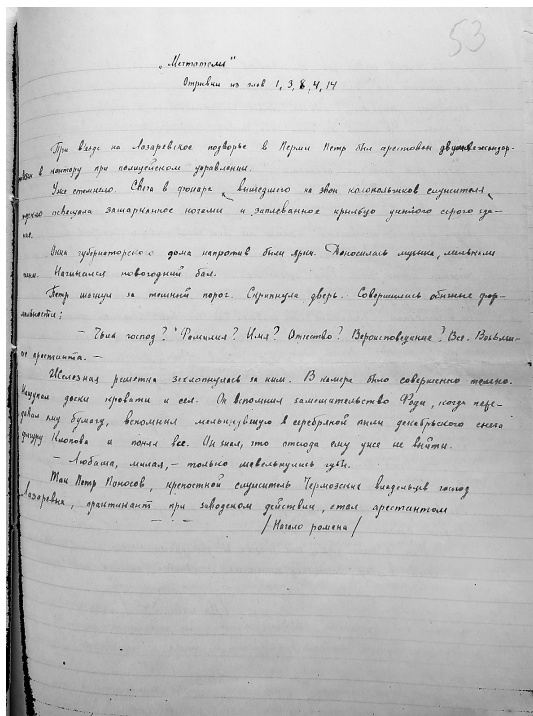 53
„Мечтатели"
Отрывки из глав 1, 3, 8, 4, 14
При въезде на Лазаревское подворье в Перми Петр был арестован двумя жандар-
в контору при полицейском управлении.
Уже стемнело. Свеча в фонаре вышедшего на звон колокольчиков служителя
освещала зашарканное ногами и заплеванное крыльцо унылого серого зда-
ния.
Окна губернаторского дома напротив были ярки. Доносилась музыка, мелькали
тени. Начинался новогодний бал.
Петр шагнул за темный порог. Скрипнула дверь. Совершились обычные фор-
мальности:
— Чьих господ? Фамилия? Имя? Отчество? Вероисповедание? Все. Возьми-
те арестанта. —
Железная решетка захлопнулась за ним. В камере было совершенно темно.
Нащупал доски кровати и сел. Он вспомнил замешательство Феди, когда пере-
давал ему бумагу, вспомнил мелькнувшую в серебряной пыли декабрьского снега
фигуру Клопова и понял все. Он знал, что отсюда ему уже не выйти.
— Любаша, милая, — только шевельнулись губы.
Так Петр Поносов, крепостной служитель Чермозских владельцев господ
Лазаревых, практикант при заводском действии, стал арестантом
/Начало романа/